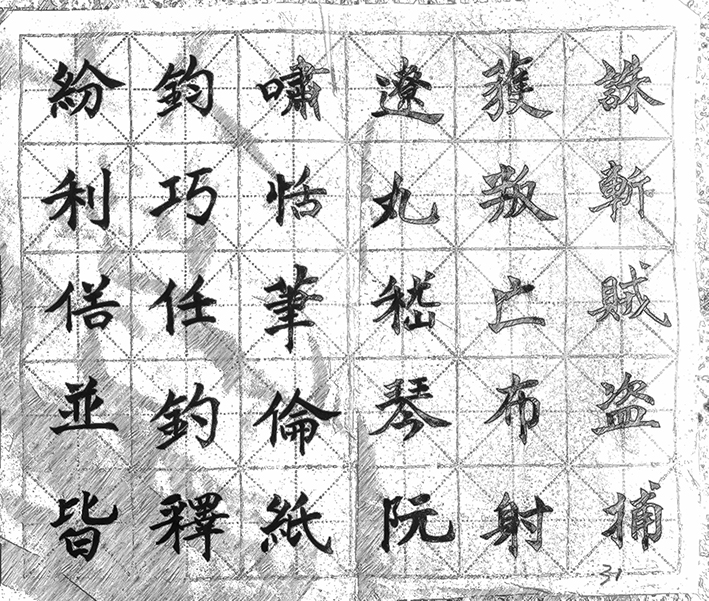 誅斬賊盜捕
獲叛亡布射
遼丸嵇琴阮
嘯恬筆倫紙
鈞巧任釣釋
紛利俗並皆
31